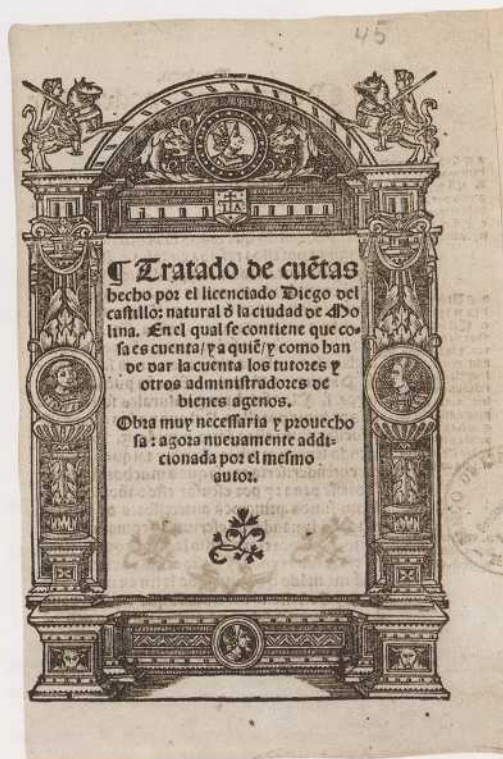 45
¶ Tratado de cuẽtas
hecho por el licenciado Diego del
castillo: natural ð la ciudad de Mo
lina. En el qual se contiene que co-
sa es cuenta/ y a quiẽ/ y como han
de dar la cuenta los tutores y
otros administradores de
bienes agenos.
Obra muy necessaria y prouecho
sa: agora nueuamente addi-
cionada por el mesmo
autor.